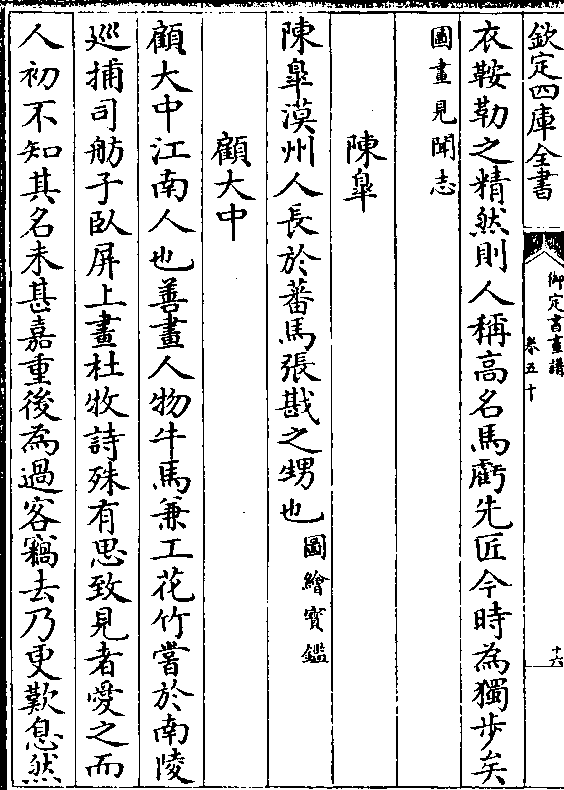 欽定四庫全書
御定書畫譜
卷五十
十六
衣鞍勒之精然則人稱高名馬虧先匠今時為獨步矣
圖畫見聞志
陳臯
陳臯漠州人長於蕃馬張戡之甥也圖繪寳鑑
顧大中
顧大中江南人也善畫人物牛馬兼工花竹嘗於南陵
巡捕司舫子臥屏上畫杜牧詩殊有思致見者愛之而
人初不知其名未甚嘉重後為過客竊去乃更歎息然